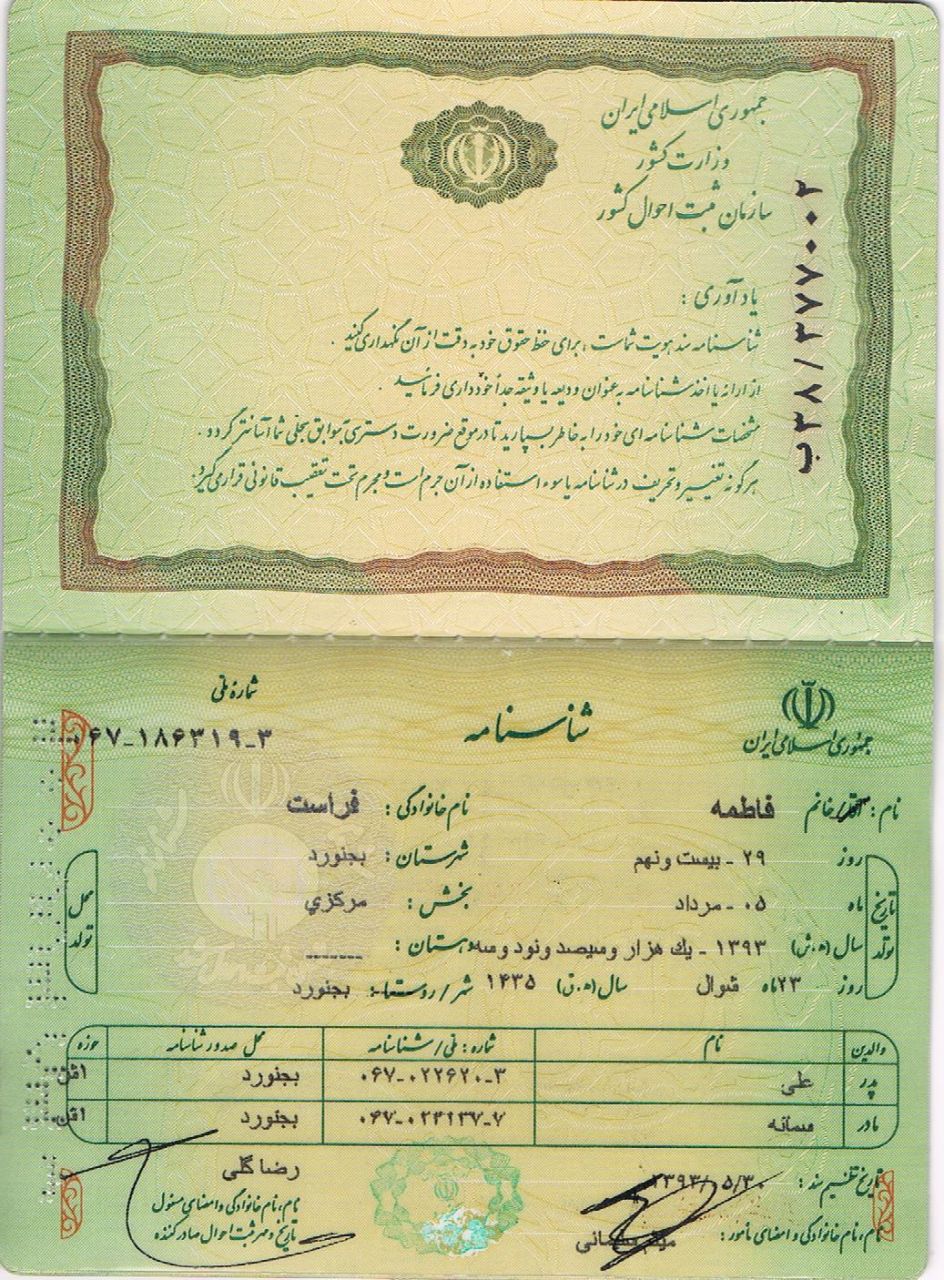 جمهوری اسلامی ایران
وزارت کشور
سازمان ثبت احوال کشور
ب۳۸/۲۷۷۰۰۲
یادآوری :
شناسنامه سند هویت شماست ، برای حفظ حقوق خود به دقت از آن نگهداری کنید .
از ارائه یا اخذ شناسنامه به عنوان ودیعه یا وثیقه جداً خودداری فرمائید .
مشخصات شناسنامه ای خود را به خاطر بسپارید تا در موقع ضرورت دسترسی به سوابق سجلی شما آسانتر گردد .
هرگونه تغییر و تحریف در شناسنامه یا سوء استفاده از آن جرم است و مجرم تحت تعقیب قانونی قرار می گیرد .
جمهوری اسلامی ایران
شناسنامه
شماره ملی
۰۶۷-۱۸۶۳۱۹-۳
نام : آقا/خانم فاطمه نام خانوادگی : فراست
تاریخ تولد
روز ۲۹ - بیست ونهم
ماه ۰۵ - مرداد
سال (ه.ش) ۱۳۹۳ - یك هزار وسیصد ونود وسه
روز ۲۳ ماه شوال سال (ه.ق) ۱۴۳۵
محل تولد
شهرستان : بجنورد
بخش : مرکزي
دهستان : -------
شهر/روستا : بجنورد
والدین نام شماره : ملی/شناسنامه محل صدور شناسنامه حوزه
پدر علی ۰۶۷-۰۲۲۶۲۰-۳ بجنورد
مادر سمانه ۰۶۷-۰۲۴۹۳۷-۷ بجنورد
تاریخ تنظیم سند : ۱۳۹۳/۰۵/۳۰
نام، نام خانوادگی و امضای مامور :
رضا گلی
نام، نام خانوادگی و امضای مسئول
تاریخ و مهر ثبت احوال صادر کننده